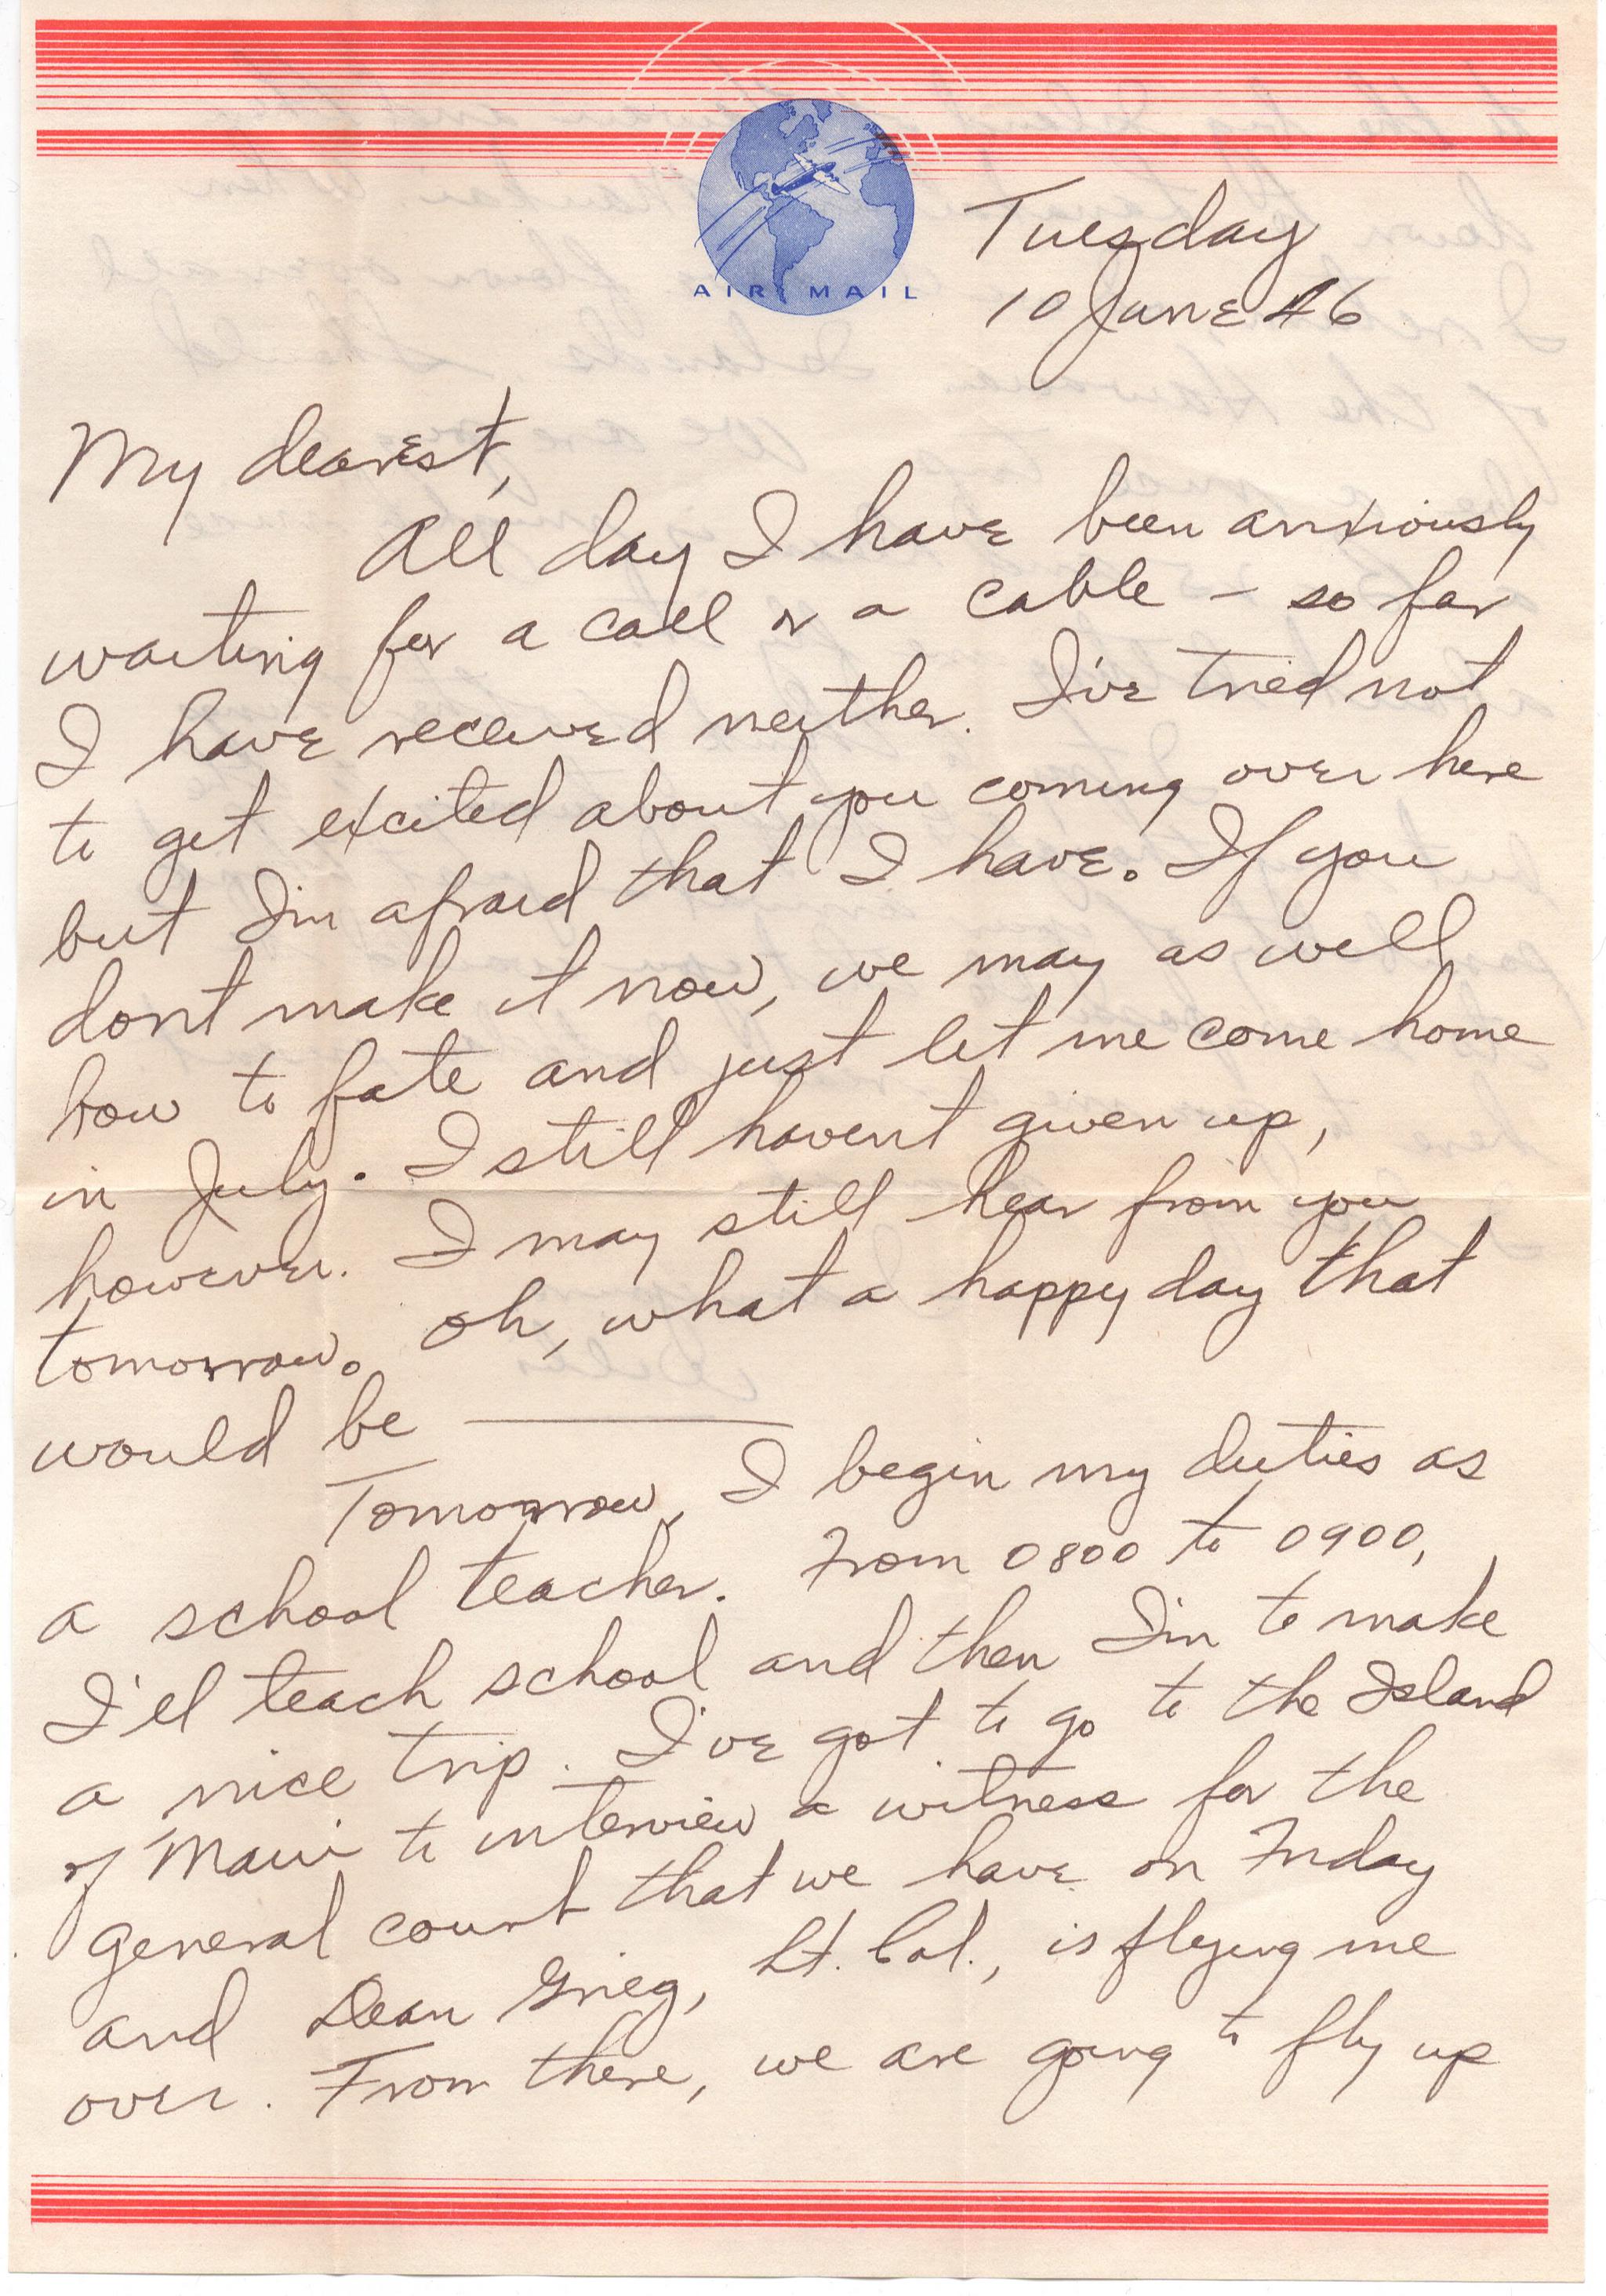 AIR MAIL
Tuesday
10 June 46
My dearest,
All day I have been anxiously
waiting for a call or a cable – so far
I have received neither. I've tried not
to get excited about you coming over here
but I'm afraid that I have. If you
don't make it now, we may as well
bow to fate and just let me come home
in July. I still haven't given up,
however. I may still hear from you
tomorrow. Oh, what a happy day that
would be ———
Tomorrow, I begin my duties as
a school teacher. From 0800 to 0900,
I'll teach school and then I'm to make
a nice trip. I've got to go to the Island
of Maui to interview a witness for the
general court that we have on Friday
and Dean Grieg, Lt. Col., is flying me
over. From there, we are going to fly up